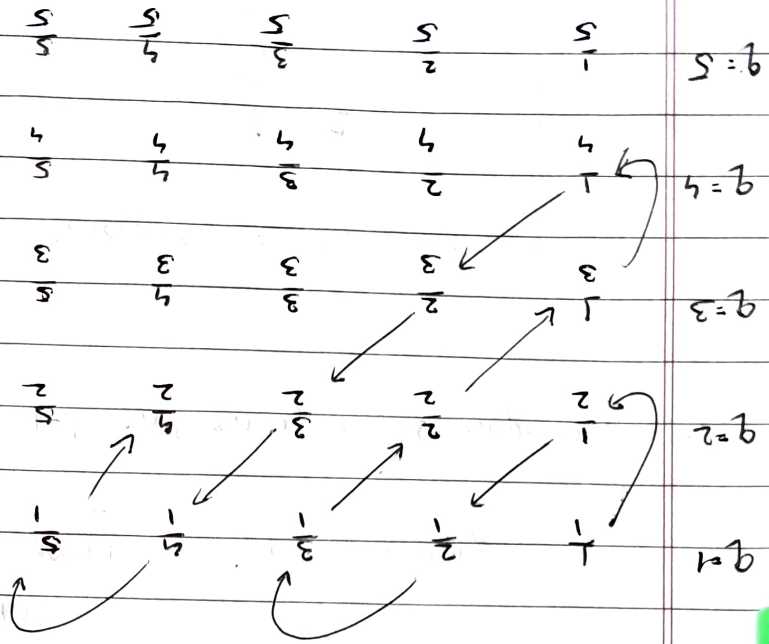 q=1 1/1 2/1 3/1 4/1 5/1
q=2 1/2 2/2 3/2 4/2 5/2
q=3 1/3 2/3 3/3 4/3 5/3
q=4 1/4 2/4 3/4 4/4 5/4
q=5 1/5 2/5 3/5 4/5 5/5